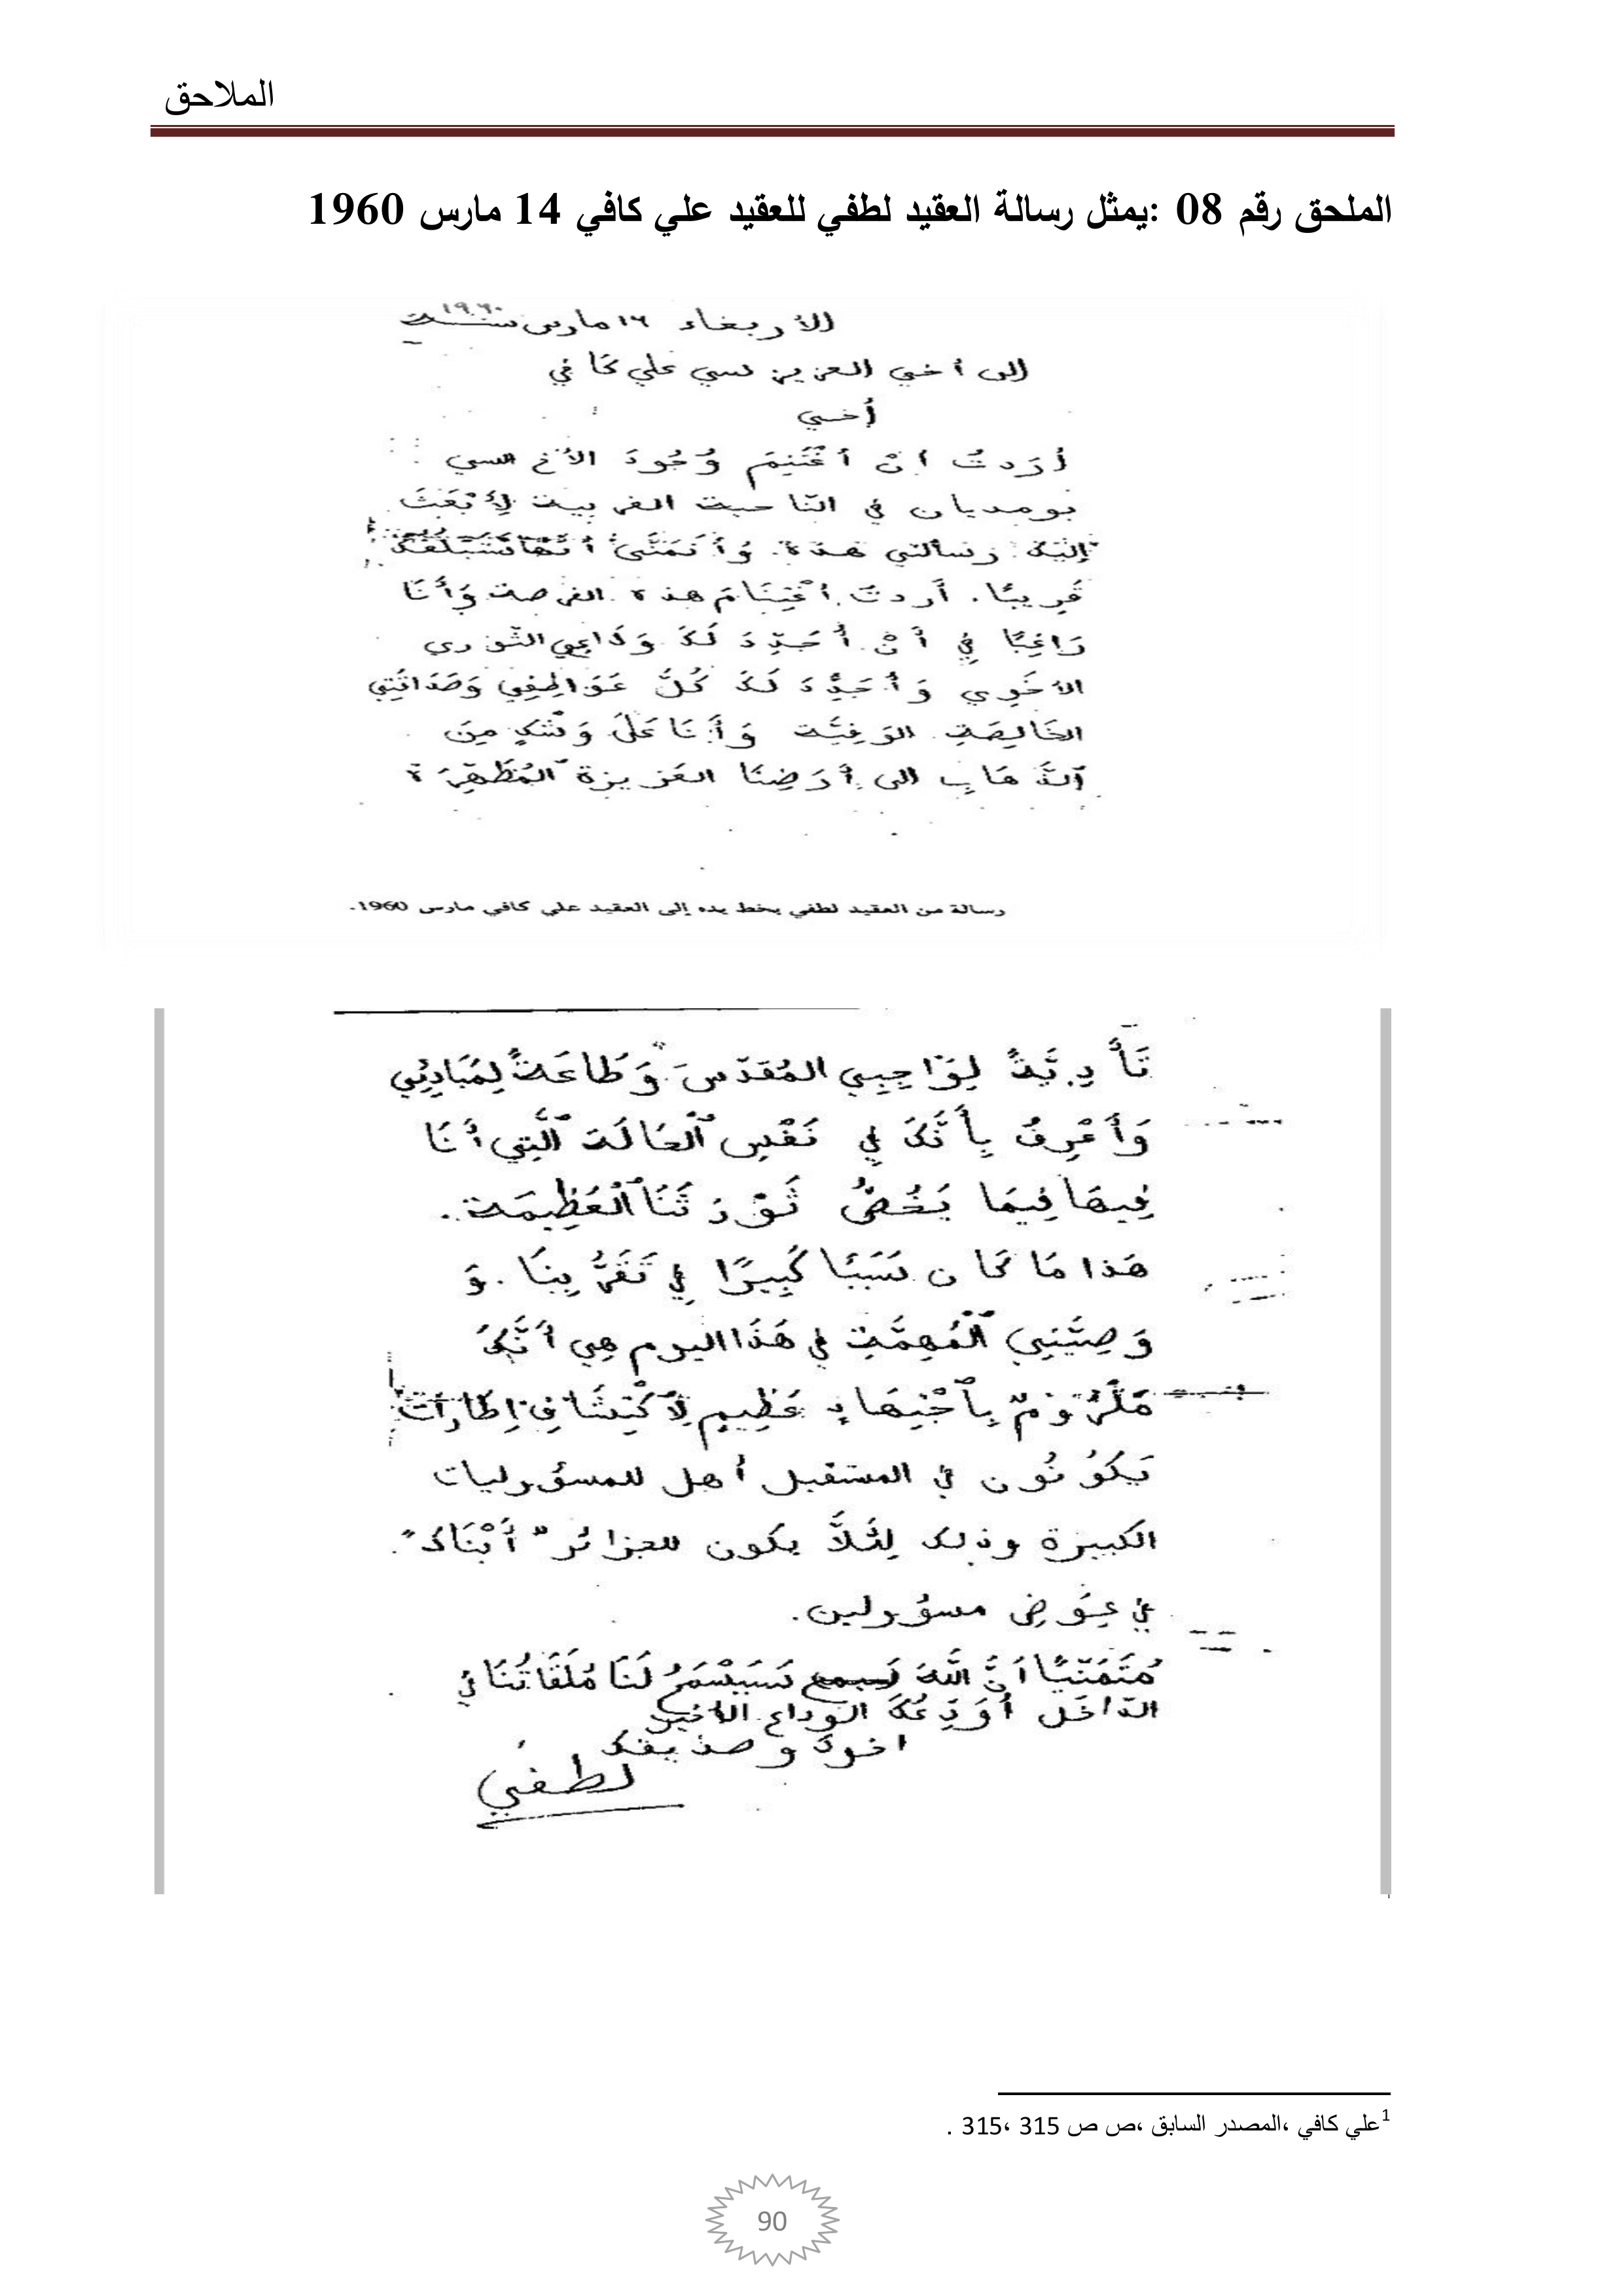 الملاحق
الملحق رقم 08 :يمثل رسالة العقيد لطفي للعقيد علي كافي 14 مارس 1960
الأربعاء ١٦ مارس سنة ١٩٦٠
إلى أخي العزيز سي علي كافي
أخي
أَرَدتُ انْ أغْتَنِمَ وُجُودَ الأخ السي
بومديان في النّاحية الغربية لِأبْعَثَ
إليكَ رسالتي هذه. وَأتَمَنَّى أنَّهَا سَتَبْلُغُكَ
قَرِيبًا. أردتُ اغْتِنَامَ هذه الفرصة وَأنَا
رَاغِبًا فِي أنْ أُجَدِّدَ لَكَ وَدَاعِي الثّوري
الأخَوِي وَأُجَدِّدَ لَكَ كُلَّ عَوَاطِفِي وَصَدَاقَتِي
الخَالِصَةِ الوَفِيَّة وَأنَا عَلَى وَشْكٍ مِنَ
الذَّهَابِ الى أرَضِنَا العَزيزة المُطَهَّرَة
رسالة من العقيد لطفي بخط يده إلى العقيد علي كافي مارس 1960.
تَأدِيَّةً لِوَاجِبِي المُقدّسَ وَطَاعَةً لِمَبَادِئِي
وَأعْرِفُ بِأنَّكَ فِي نَفْسِ الْحَالَة الَّتِي أنَا
فِيهَا فِيمَا يَخُصُّ ثَوْرَتَنَا الْعَظِيمَة.
هَذا مَا كَان سَبَبًا كَبِيرًا فِي تَقَرُّبِنَا. وَ
وَصِيَّتِي الْمُهِمَّة فِي هَذَا اليوم هِي أنَّكَ
مَلْزُومٌ بِاجْتِهَادٍ عَظِيمٍ لِاكْتِشَافِ إطَارَات
يَكُونُون في المستقبل أهل للمسؤوليات
الكبيرة وذلك لِئَلاَّ يكون للجزائر " أبْنَاك "
في عِوَضِ مسؤولين.
مُتَمَنِّيًا انَّ اللَّهَ سَيَسْمَحُ لَنَا مُلَقَاتُنَا في
الدّاخَل أوَدِّعُكَ الوداع الأخير
اخوك و صديقك
لطفي
1علي كافي ،المصدر السابق ،ص ص 315 ،315 .
90